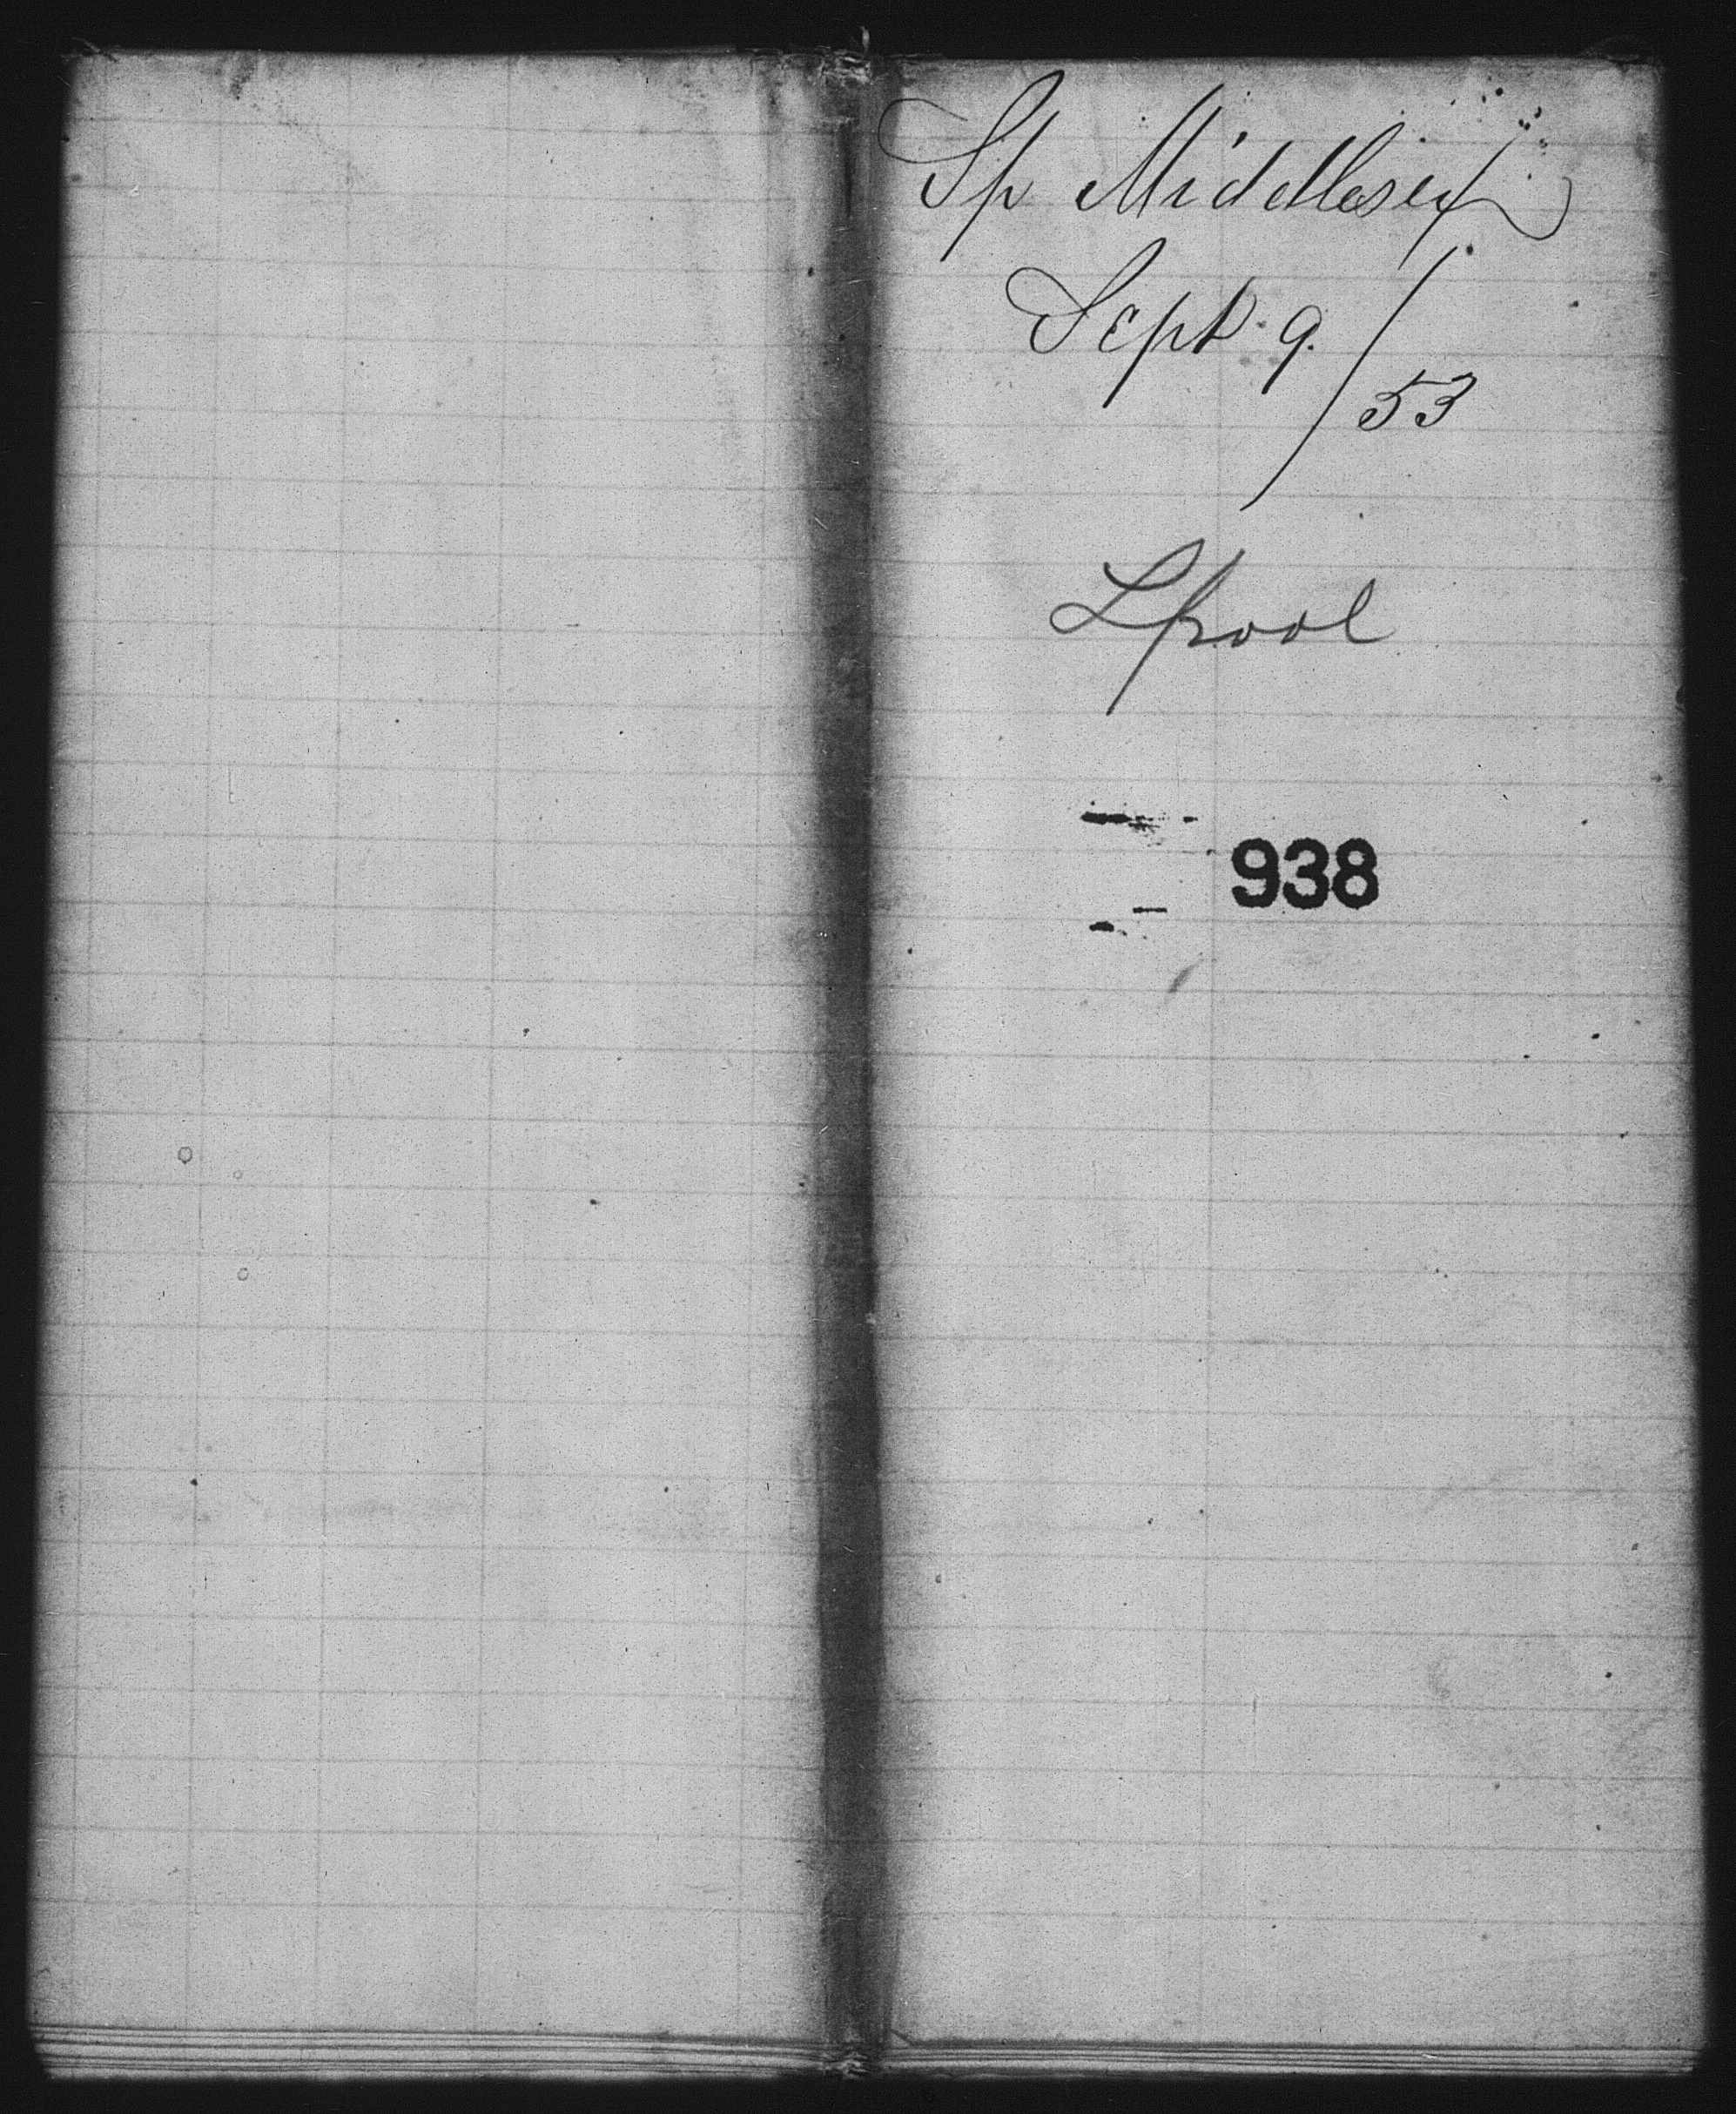 Sp Middlesex
Sept. 9. / 53
Lpool
938